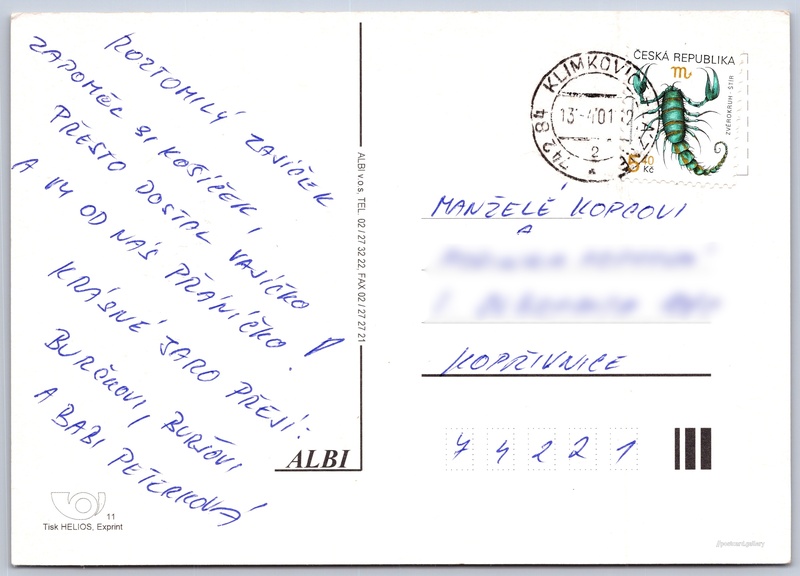 ROZTOMILÝ ZAJÍČEK
ZAPOMĚL SI KOŠÍČEK,
PŘESTO DOSTAL VAJÍČKO
A VY OD NÁS PŘÁNÍČKO!
KRÁSNÉ JARO PŘEJÍ:
BURČKOVI, BURŠOVI
A BABI PETERKOVÁ
ALBI
11
Tisk HELIOS, Exprint
ALBI v.o.s, TEL. 02/27 32 22, FAX 02 / 27 27 21
742 84 KLIMKOVICE
13.-4.01-12
2
ČESKÁ REPUBLIKA
ZVĚROKRUH - ŠTÍR
5,40
Kč
MANŽELÉ KOPCOVI
A
KOPŘIVNICE
74221
jlpostcard.gallery